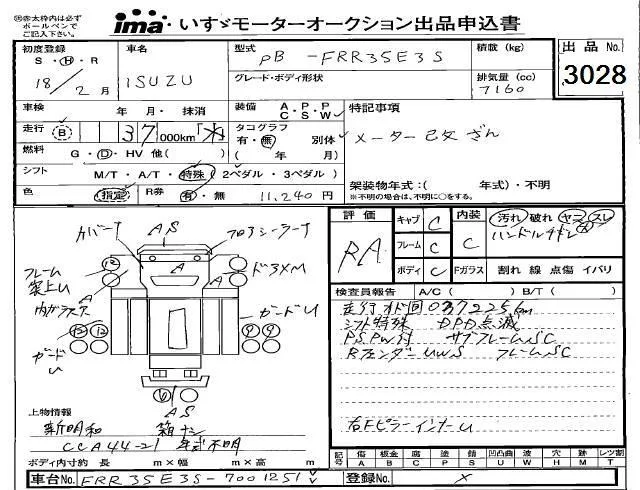 ㊟赤太枠内は必ず
ボールペンで
ご記入下さい。
ima いすゞモーターオークション出品申込書
初度登録
S・H・R
18/2月
車名
ISUZU
型式
PB-FRR35E3S
グレード・ボディ形状
積載(kg)
排気量(cc)
7160
出品No.
3028
車検 年 月・ 抹消
装備 A・P・P
C・S・W
特記事項
走行 B 37,000km
タコグラフ
有・無 別体
( 年 月)
メーター
燃料 G・D・HV 他( )
シフト M/T・A/T・特殊(2ペダル・3ペダル)
架装物年式:( 年式)・不明
※不明の場合は、不明に○をする。
色 指定 R券 有・無 11,240円
評価
RA
キャブ C
フレーム C
ボディ C
内装 C
Fガラス
汚れ 破れ ヤコ スレ
ハンドル
割れ 線 点傷 イバリ
カバーナ
AS
フロアシーラーナ
フレーム
架上U
ドアXM
A
A
A
内ガラスズ
ガードU
ガード
U
AS
検査員報告 A/C( ) B/T( )
走行オド回037225km
シフト特殊 DPD点滅
P.S.PW付 サブフレームSC
RフェンダーUWS フレームSC
右Fピラーインナーu
上物情報
新明和 箱ナシ
CCA44-21 年式不明
ボディ内寸約 長 m×幅 m×高 m
記号 傷 板 腐 塗 錆 凹凸曲 波 穴 跡 レツ割
A B C P S U W H M T
車台No. FRR35E3S-7001251
登録No. ×